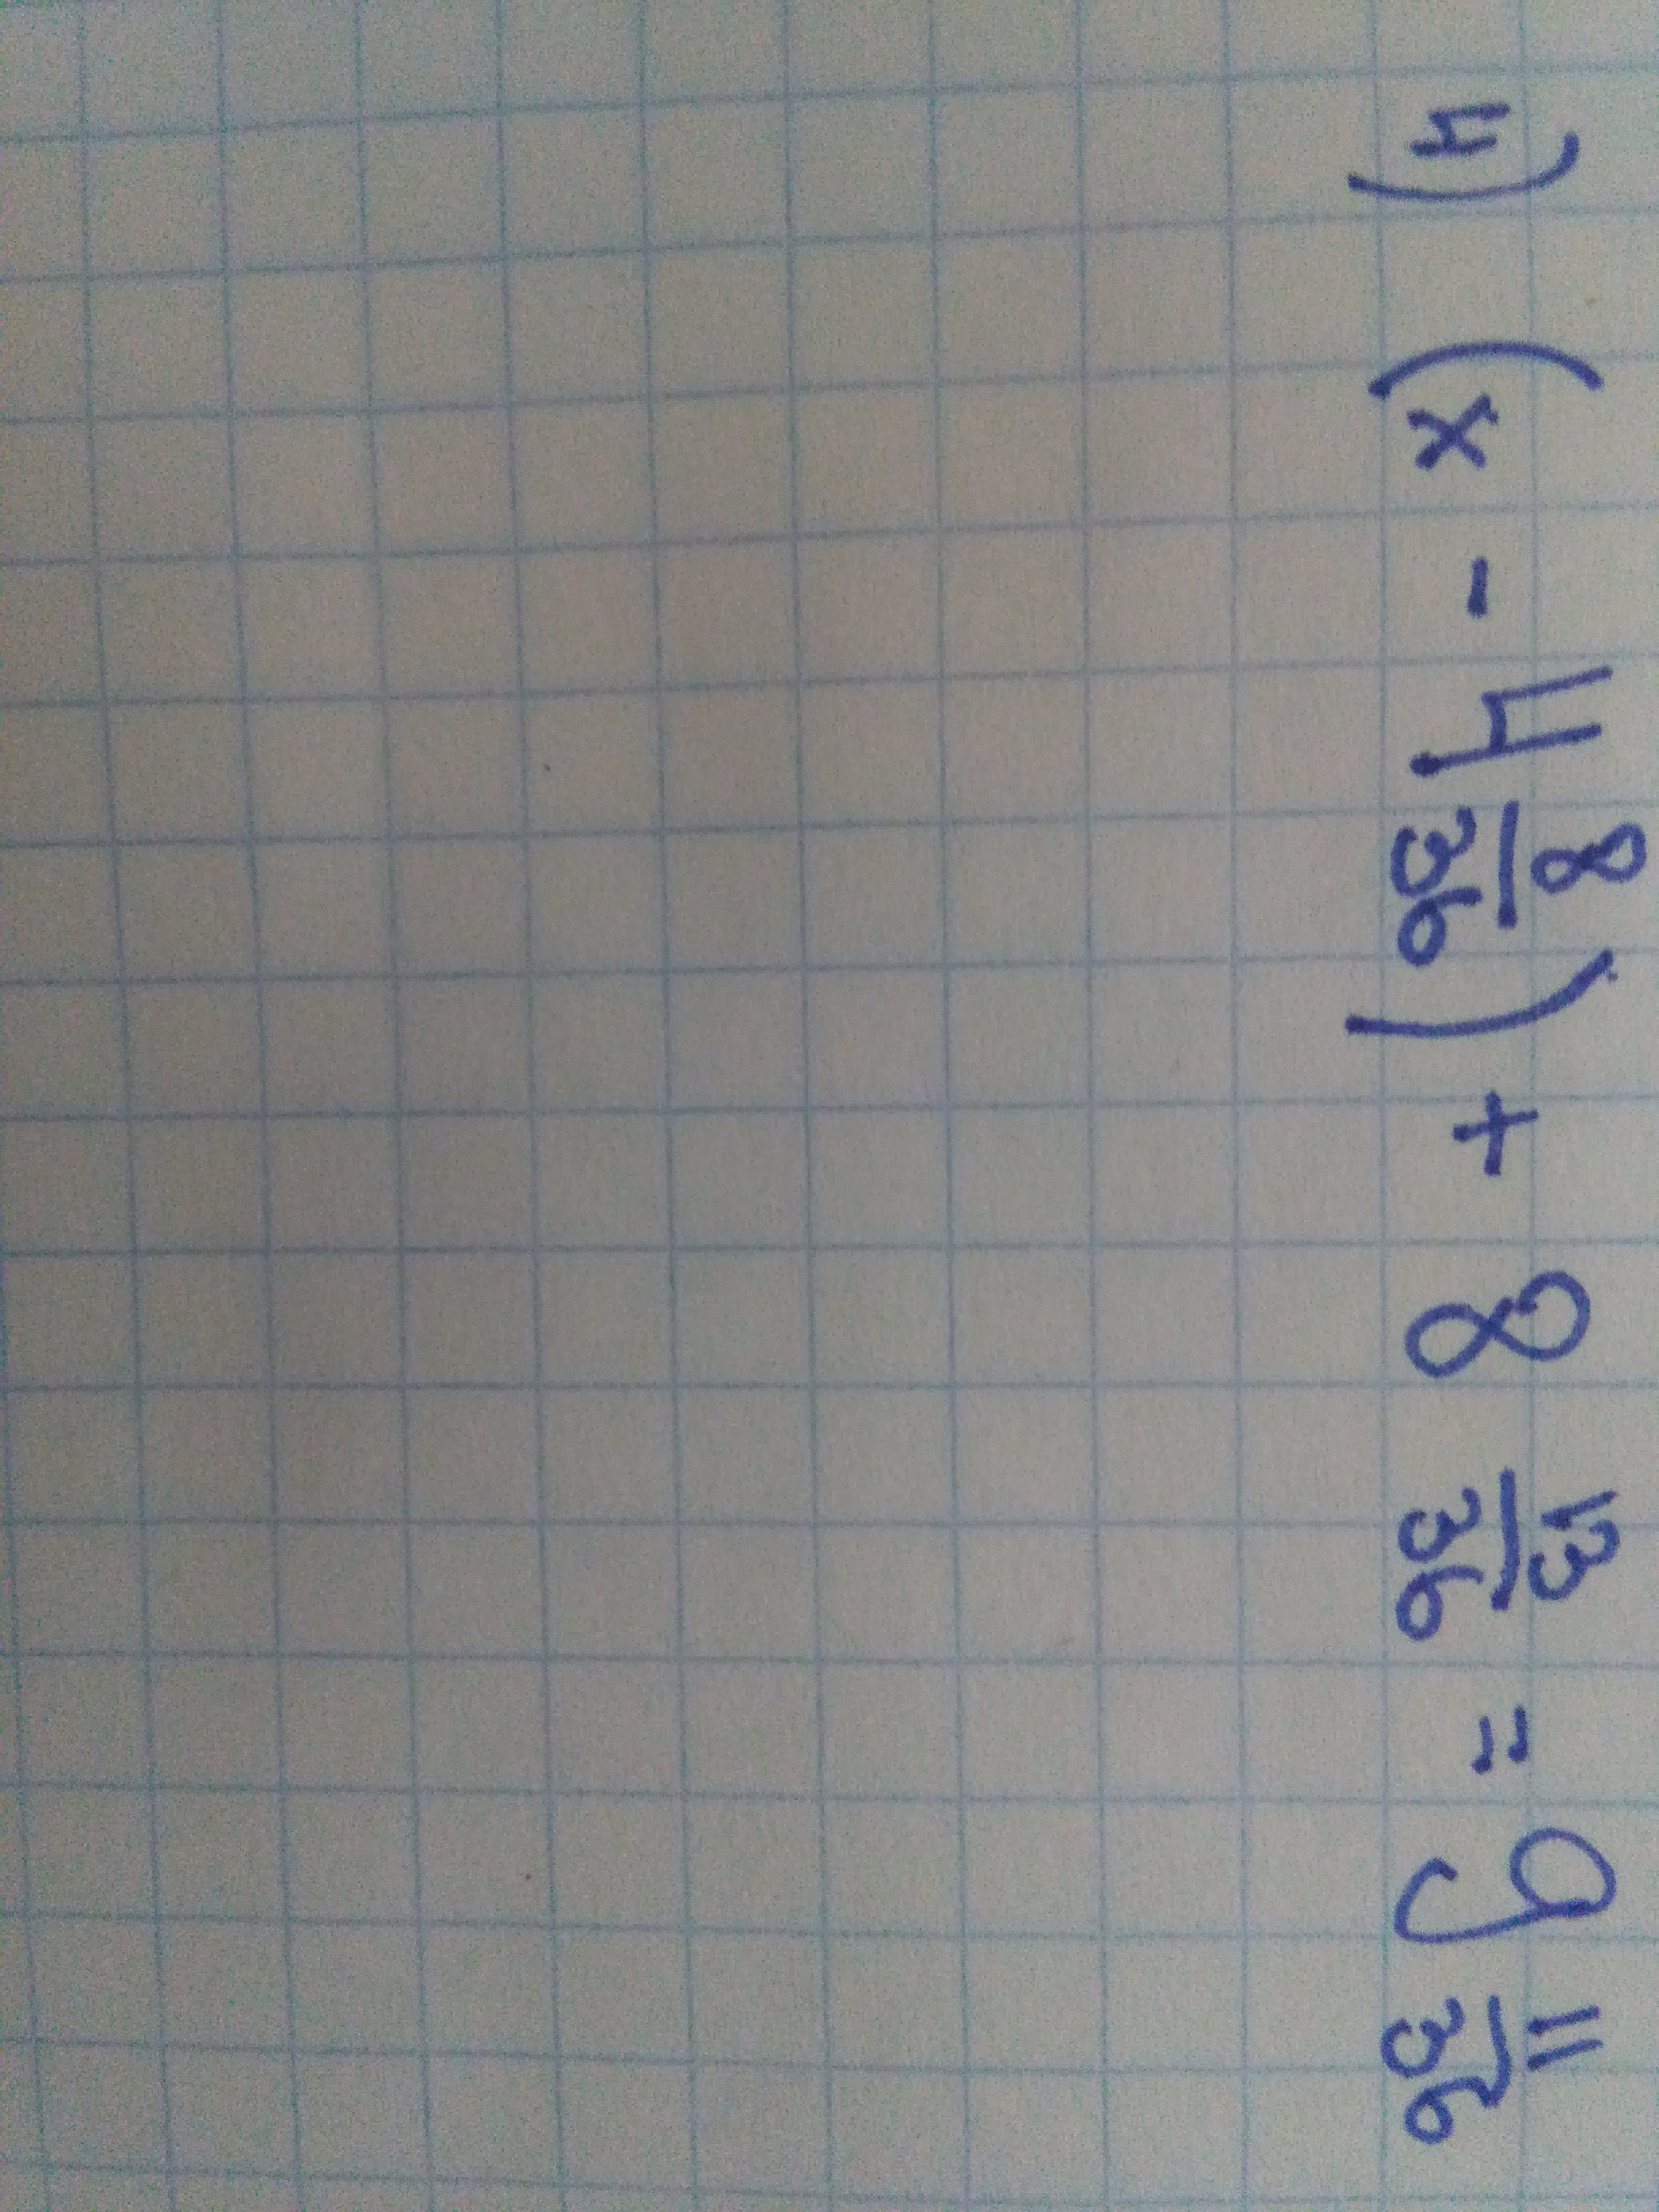 4) (x - 4 8/36) + 8 13/36 = 9 11/36